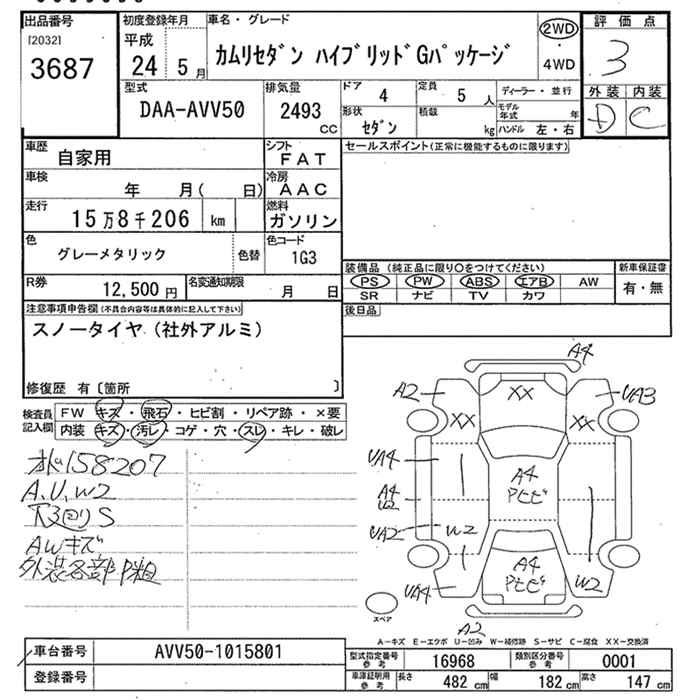 出品番号
[2032]
3687
初度登録年月
平成
24 5 月
車名・グレード
カムリセダン ハイブリッドGパッケージ
2WD
・
4WD
評価点
3
外装 内装
D C
型式
DAA-AVV50
排気量
2493
CC
ドア
4
定員
5 人
形状
セダン
積載
kg
ディーラー・並行
モデル年式 年
ハンドル 左・右
車歴
自家用
シフト
FAT
車検
年 月( 日)
冷房
AAC
走行
15万8千206 km
燃料
ガソリン
色
グレーメタリック
色替
色コード
1G3
R券
12,500 円
名変通知期限
月 日
セールスポイント(正常に機能するものに限ります)
装備品 (純正品に限り○をつけてください)
PS PW ABS エアB AW
SR ナビ TV カワ
新車保証書
有・無
後日品
注意事項申告欄(不具合内容等は具体的に記入して下さい)
スノータイヤ(社外アルミ)
修復歴 有〔箇所 〕
検査員記入欄
FW キズ・飛石・ヒビ割・リペア跡・×要
内装 キズ・汚レ・コゲ・穴・スレ・キレ・破レ
オド158207
A,U,W2
下回りS
AWキズ
外装各部P粗
A4
A2
XX
UA3
XX
XX
UA4
A4
U2
A4
Pヒビ
UA2
W2
A4
Pヒビ
W2
UA4
スペア
A2
A-キズ E-エクボ U-凹み W-補修跡 S-サビ C-腐食 XX-交換済
車台番号
AVV50-1015801
登録番号
型式指定番号参考
16968
類別区分番号参考
0001
車庫証明用参考
長さ 482 cm
幅 182 cm
高さ 147 cm